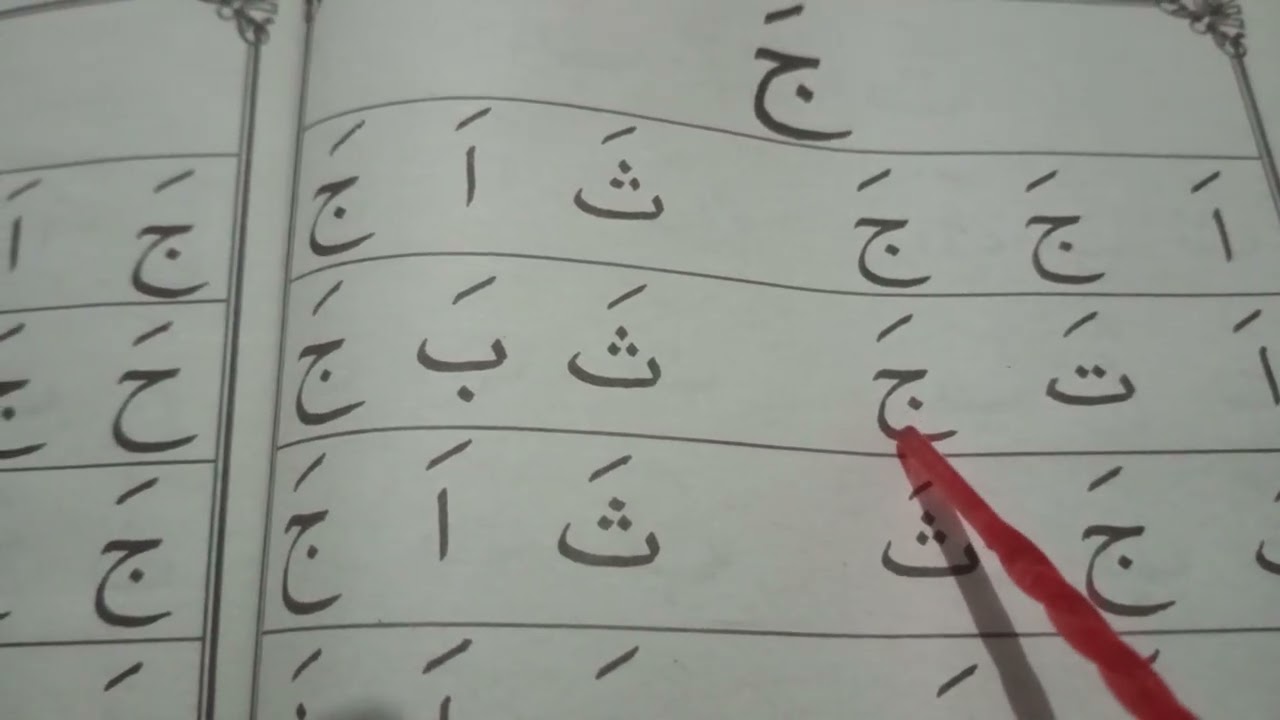 جَ
اَ جَ جَ ثَ اَ جَ
اَ تَ جَ ثَ بَ جَ
جَ ثَ ثَ اَ جَ
جَ اَ
حَ جَ
جَ